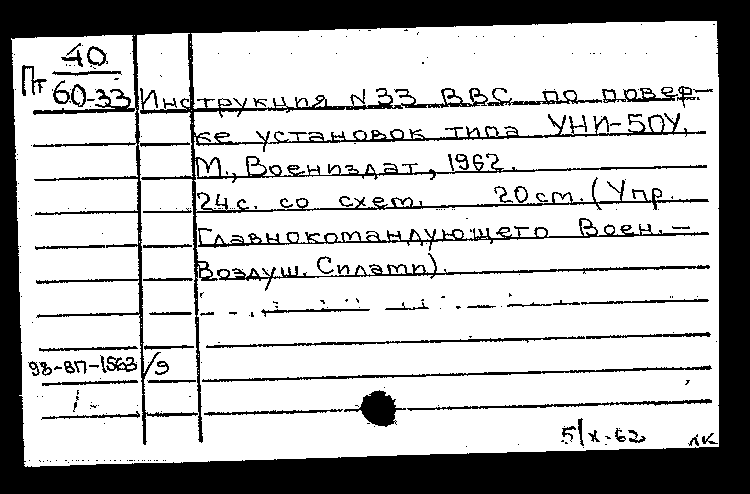 40
Пт 60-33 Инструкция N33 ВВС по повер-
ке установок типа УНИ-50У.
М., Воениздат, 1962.
24с. со схем. 20см. (Упр.
Главнокомандующего Воен.-
Воздуш. Силами).
93-ВП-1563/9
5/X-62 лк